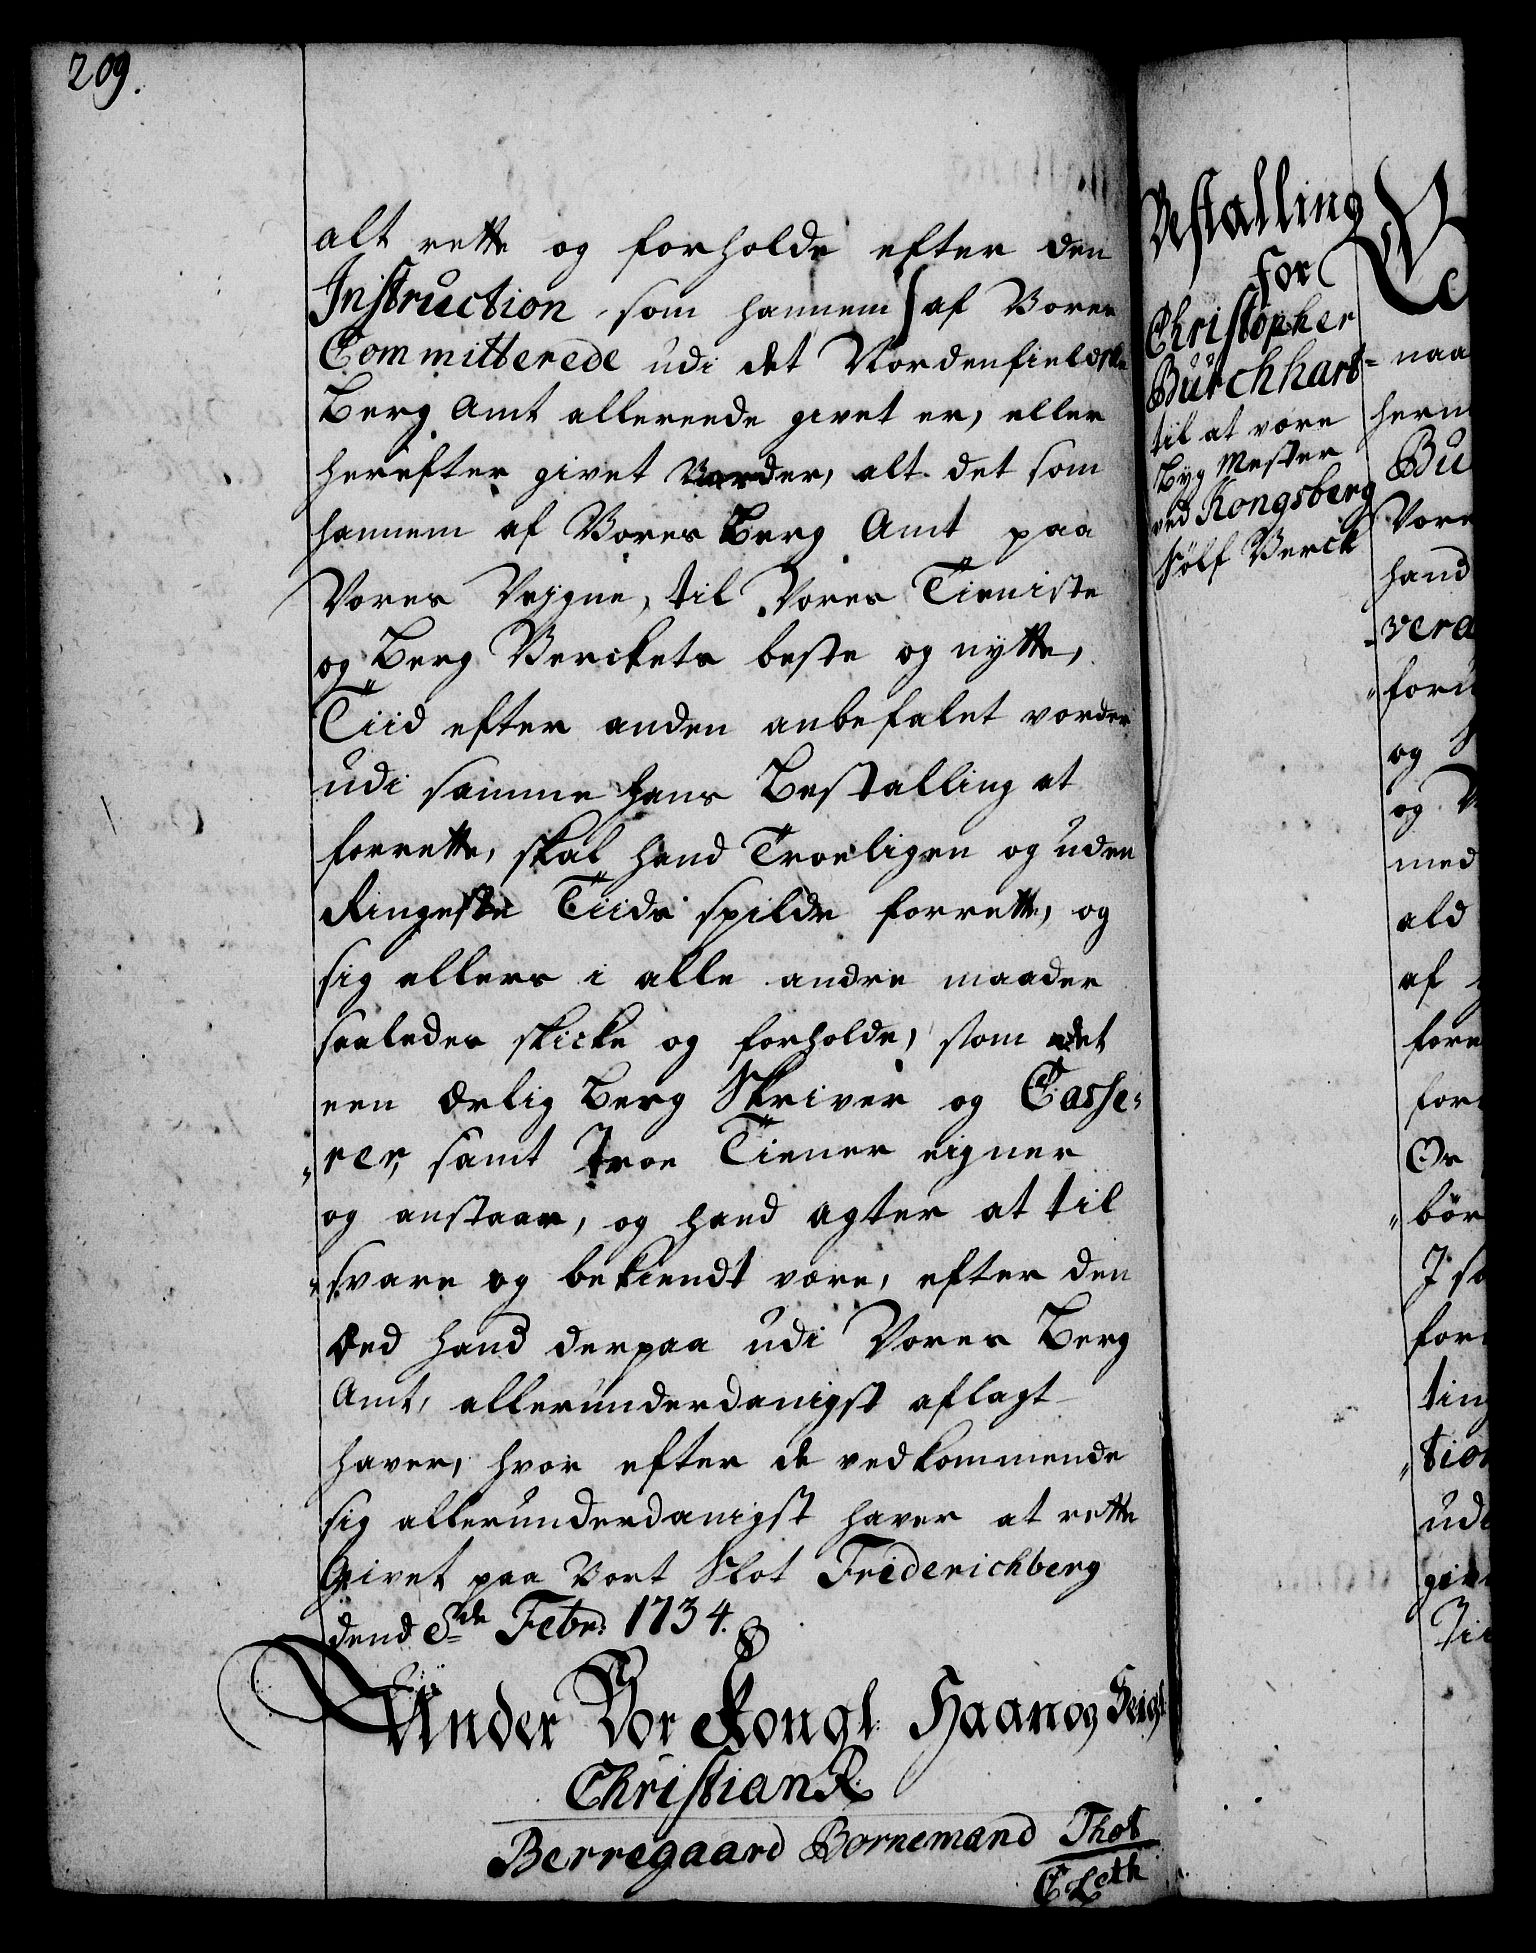 209.
alt rette og forholde efter den
Instruction som hannem af Vores
Committerede udi det Nordenfieldske
Berg Amt allereede givet er, eller
herefter givet Vorder, alt det som
hannem af Vores Berg Amt paa
Vores Veigne, til Vores Tieniste
og Berg Verckets beste og nytte,
Tiid efter anden anbefalet vorder
udi samme hans Bestalling at
forrette, skal hand Troeligen og uden
Ringeste Tiids spilde forrette, og
sig ellers i alle andre maader
saaledes skicke og forholde, som det
een Ærlig Berg Skriver og Casse-
"rer, samt troe Tiener eigner
og anstaar, og hand agter at til
"svare og bekiendt være, efter den
Æed hand derpaa udi Vores Berg
Amt, allerunderdanigst aflagt
haver, hvor efter de vedkommende
sig allerunderdanigst haver at rette
Givet paa Vort Slot Friderichberg
dend 8de Febr: 1734.
Under Vor Kongl: Haand og Seigl:
Christian R.
Berregaard Bornemand Thott
C Leth
Bestalling
for
Christopher
Burchhart
til at være
Byg Mester
ved Kongsberg
Sølf Verck
naa
hern
Bu
Vore
hand
vera
foru
og
og
med
ald
af
fore
for
Or
bør
I sa
for
ting
tion
udi
give
Tie